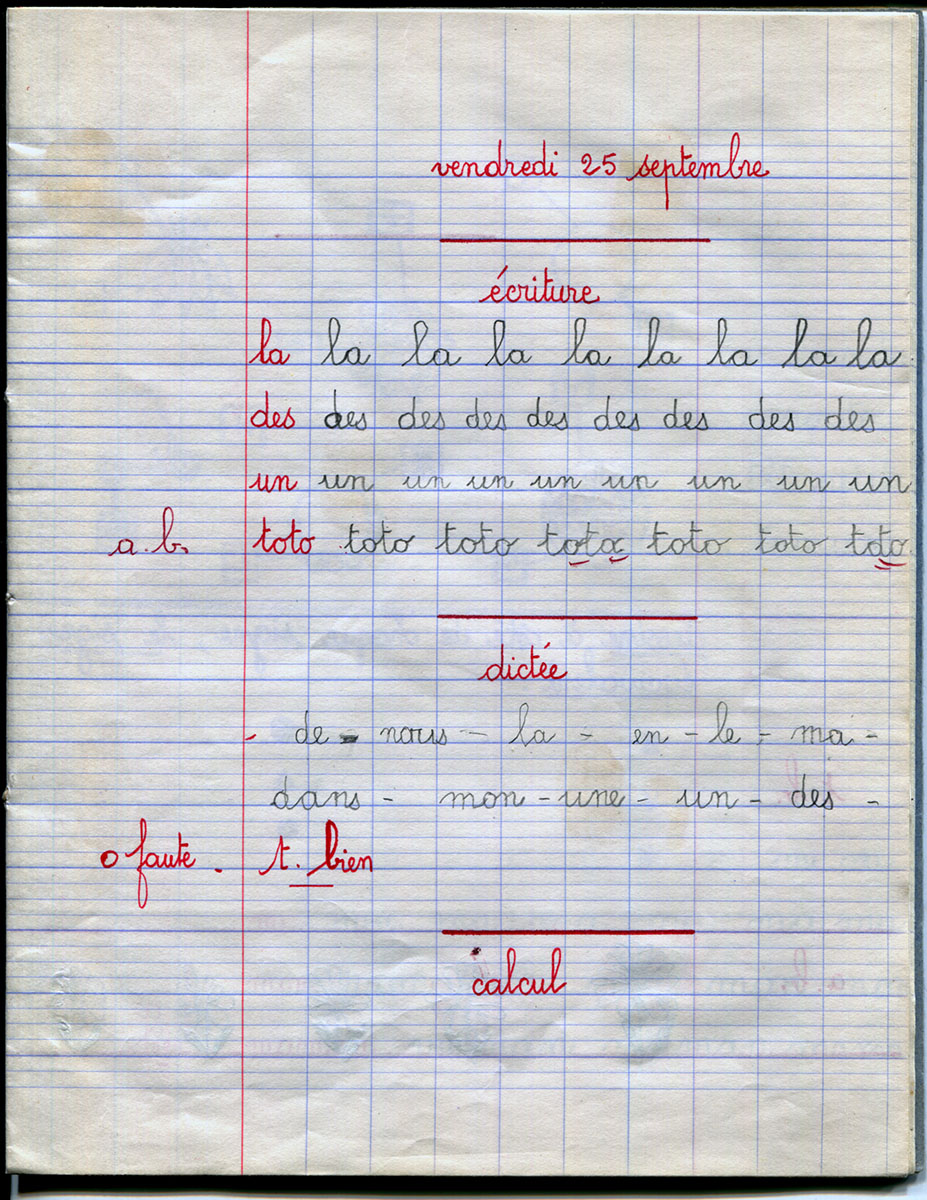 vendredi 25 septembre
écriture
la la la la la la la la la
des des des des des des des des des
un un un un un un un un un
a.b. toto toto toto tota toto toto toto
dictée
- de - nous - la - en - le - ma -
dans - mon - une - un - des -
0 faute. t. bien
calcul